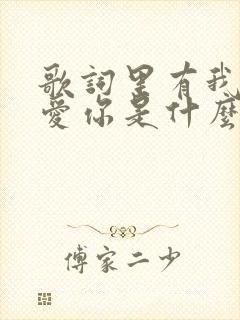 歌詞里有我
愛你是什麼
傅家二少